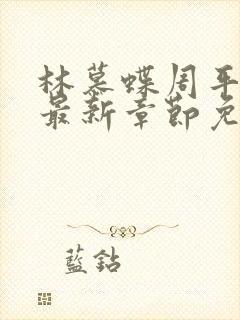 林慕蝶周平
最新章節免
藍鈷